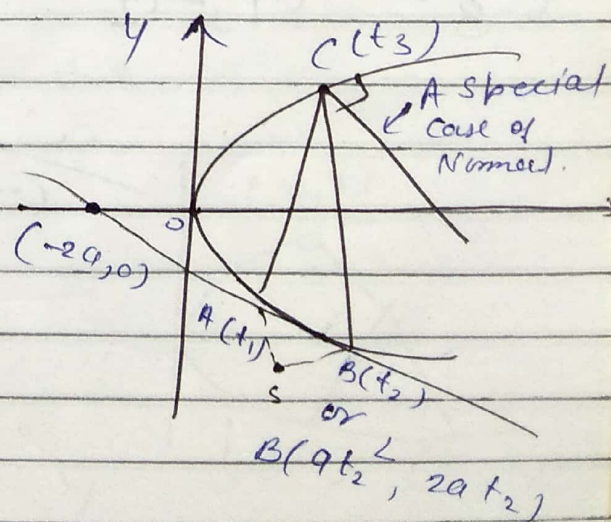 y
C(t3)
A Special
Case of
Normal.
O
(-2a,0)
A(t1)
S
B(t2)
or
B(at2^2, 2at2)